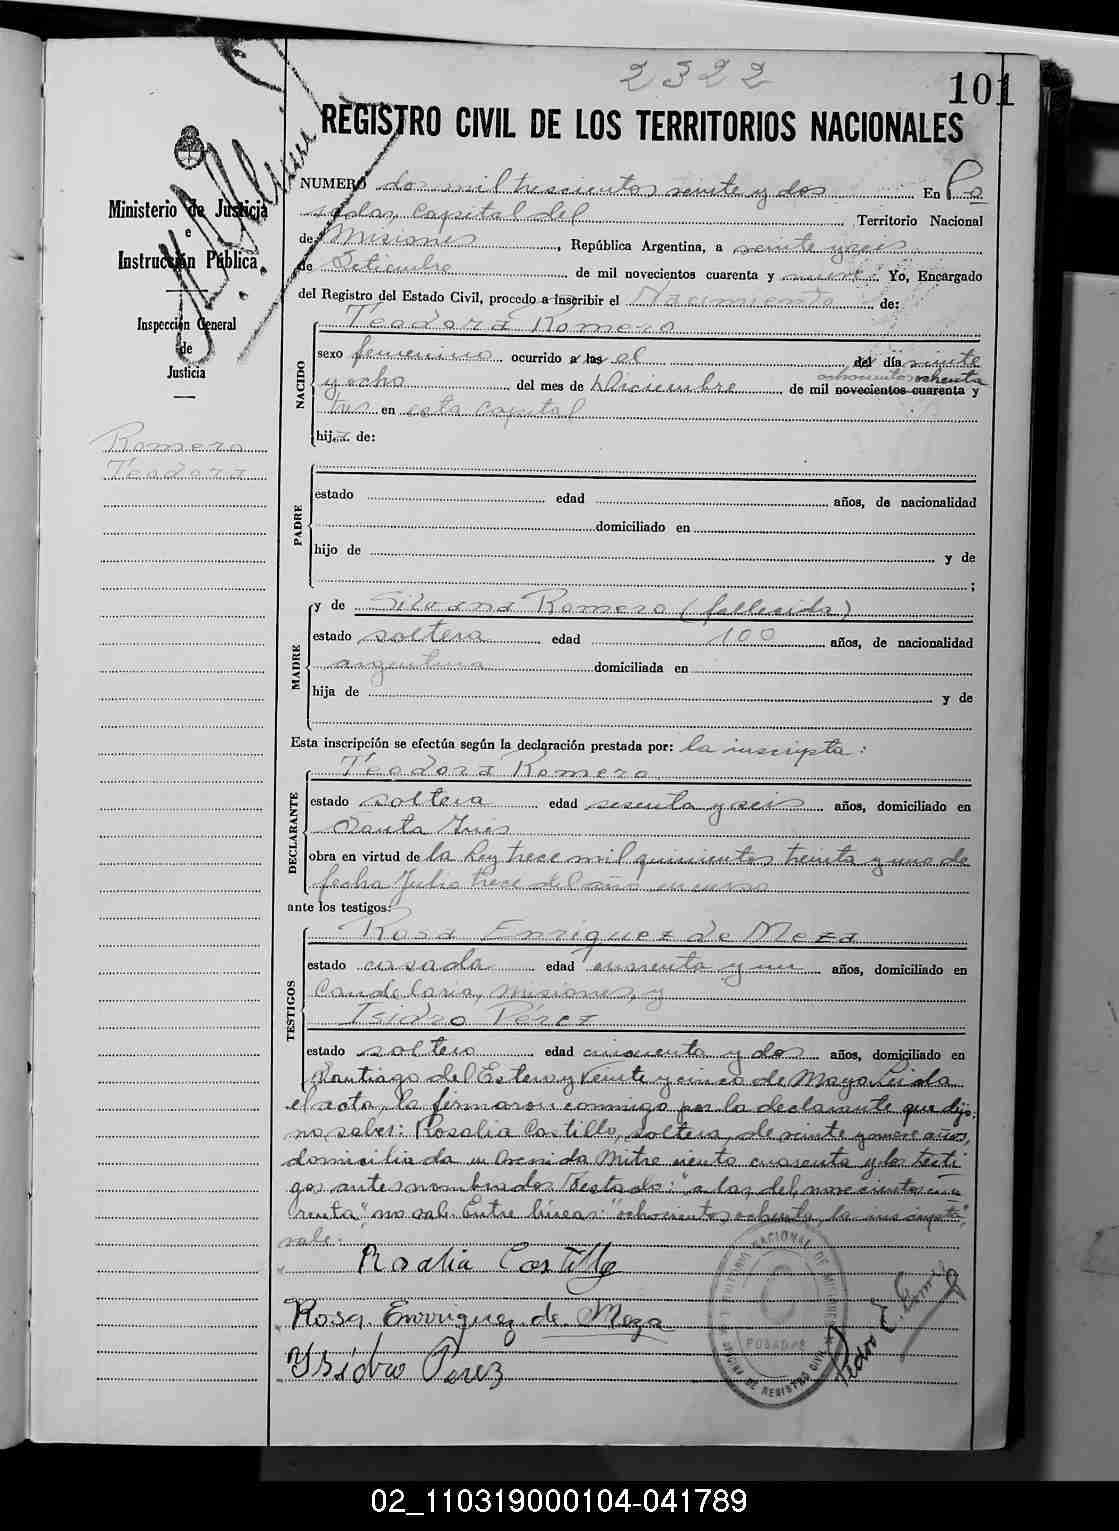 2322
101
REGISTRO CIVIL DE LOS TERRITORIOS NACIONALES
Ministerio de Justicia
e
Instrucción Pública
Inspección General
de
Justicia
Romero
Teodora
NUMERO dos mil trescientos veinte y dos En Po
sadas, Capital del Territorio Nacional
de Misiones, República Argentina, a veinte y seis
de Setiembre de mil novecientos cuarenta y nueve. Yo, Encargado
del Registro del Estado Civil, procedo a inscribir el Nacimiento de:
Teodora Romero
NACIDO
sexo femenino ocurrido a las el del día veinte
ochocientos ochenta
y ocho del mes de Diciembre de mil novecientos cuarenta y
tres en esta capital
hija de:
PADRE
estado edad años, de nacionalidad
domiciliado en
hijo de y de
;
y de Silvana Romero (fallecida)
MADRE
estado soltera edad 100 años, de nacionalidad
argentina domiciliada en
hija de y de
Esta inscripción se efectúa según la declaración prestada por: la inscripta:
Teodora Romero
DECLARANTE
estado soltera edad sesenta y seis años, domiciliado en
Santa Inés
obra en virtud de la Ley trece mil quinientos treinta y uno de
fecha Julio trece del año en curso
ante los testigos:
Rosa Enriquez de Meza
TESTIGOS
estado casada edad cuarenta y un años, domiciliado en
Candelaria, Misiones, y
Isidro Pérez
estado soltero edad cincuenta y dos años, domiciliado en
Santiago del Estero y Veinte y cinco de Mayo. Leida
el acta, la firmaron conmigo por la declarante que dijo
no saber: Rosalia Castillo, soltera, de veinte y nueve años,
domiciliada en Avenida Mitre ciento cuarenta y los testi
gos antes nombrados. Testado: "a las del, novecientos cua
renta", no vale. Entre líneas: "ochocientos ochenta, la inscripta",
vale.
Rosalia Castillo
Rosa Enrriquez de Meza
Isidro Perez
Pedro E.
TERRITORIO NACIONAL DE MISIONES
POSADAS
OFICINA DE REGISTRO CIVIL
02_110319000104-041789